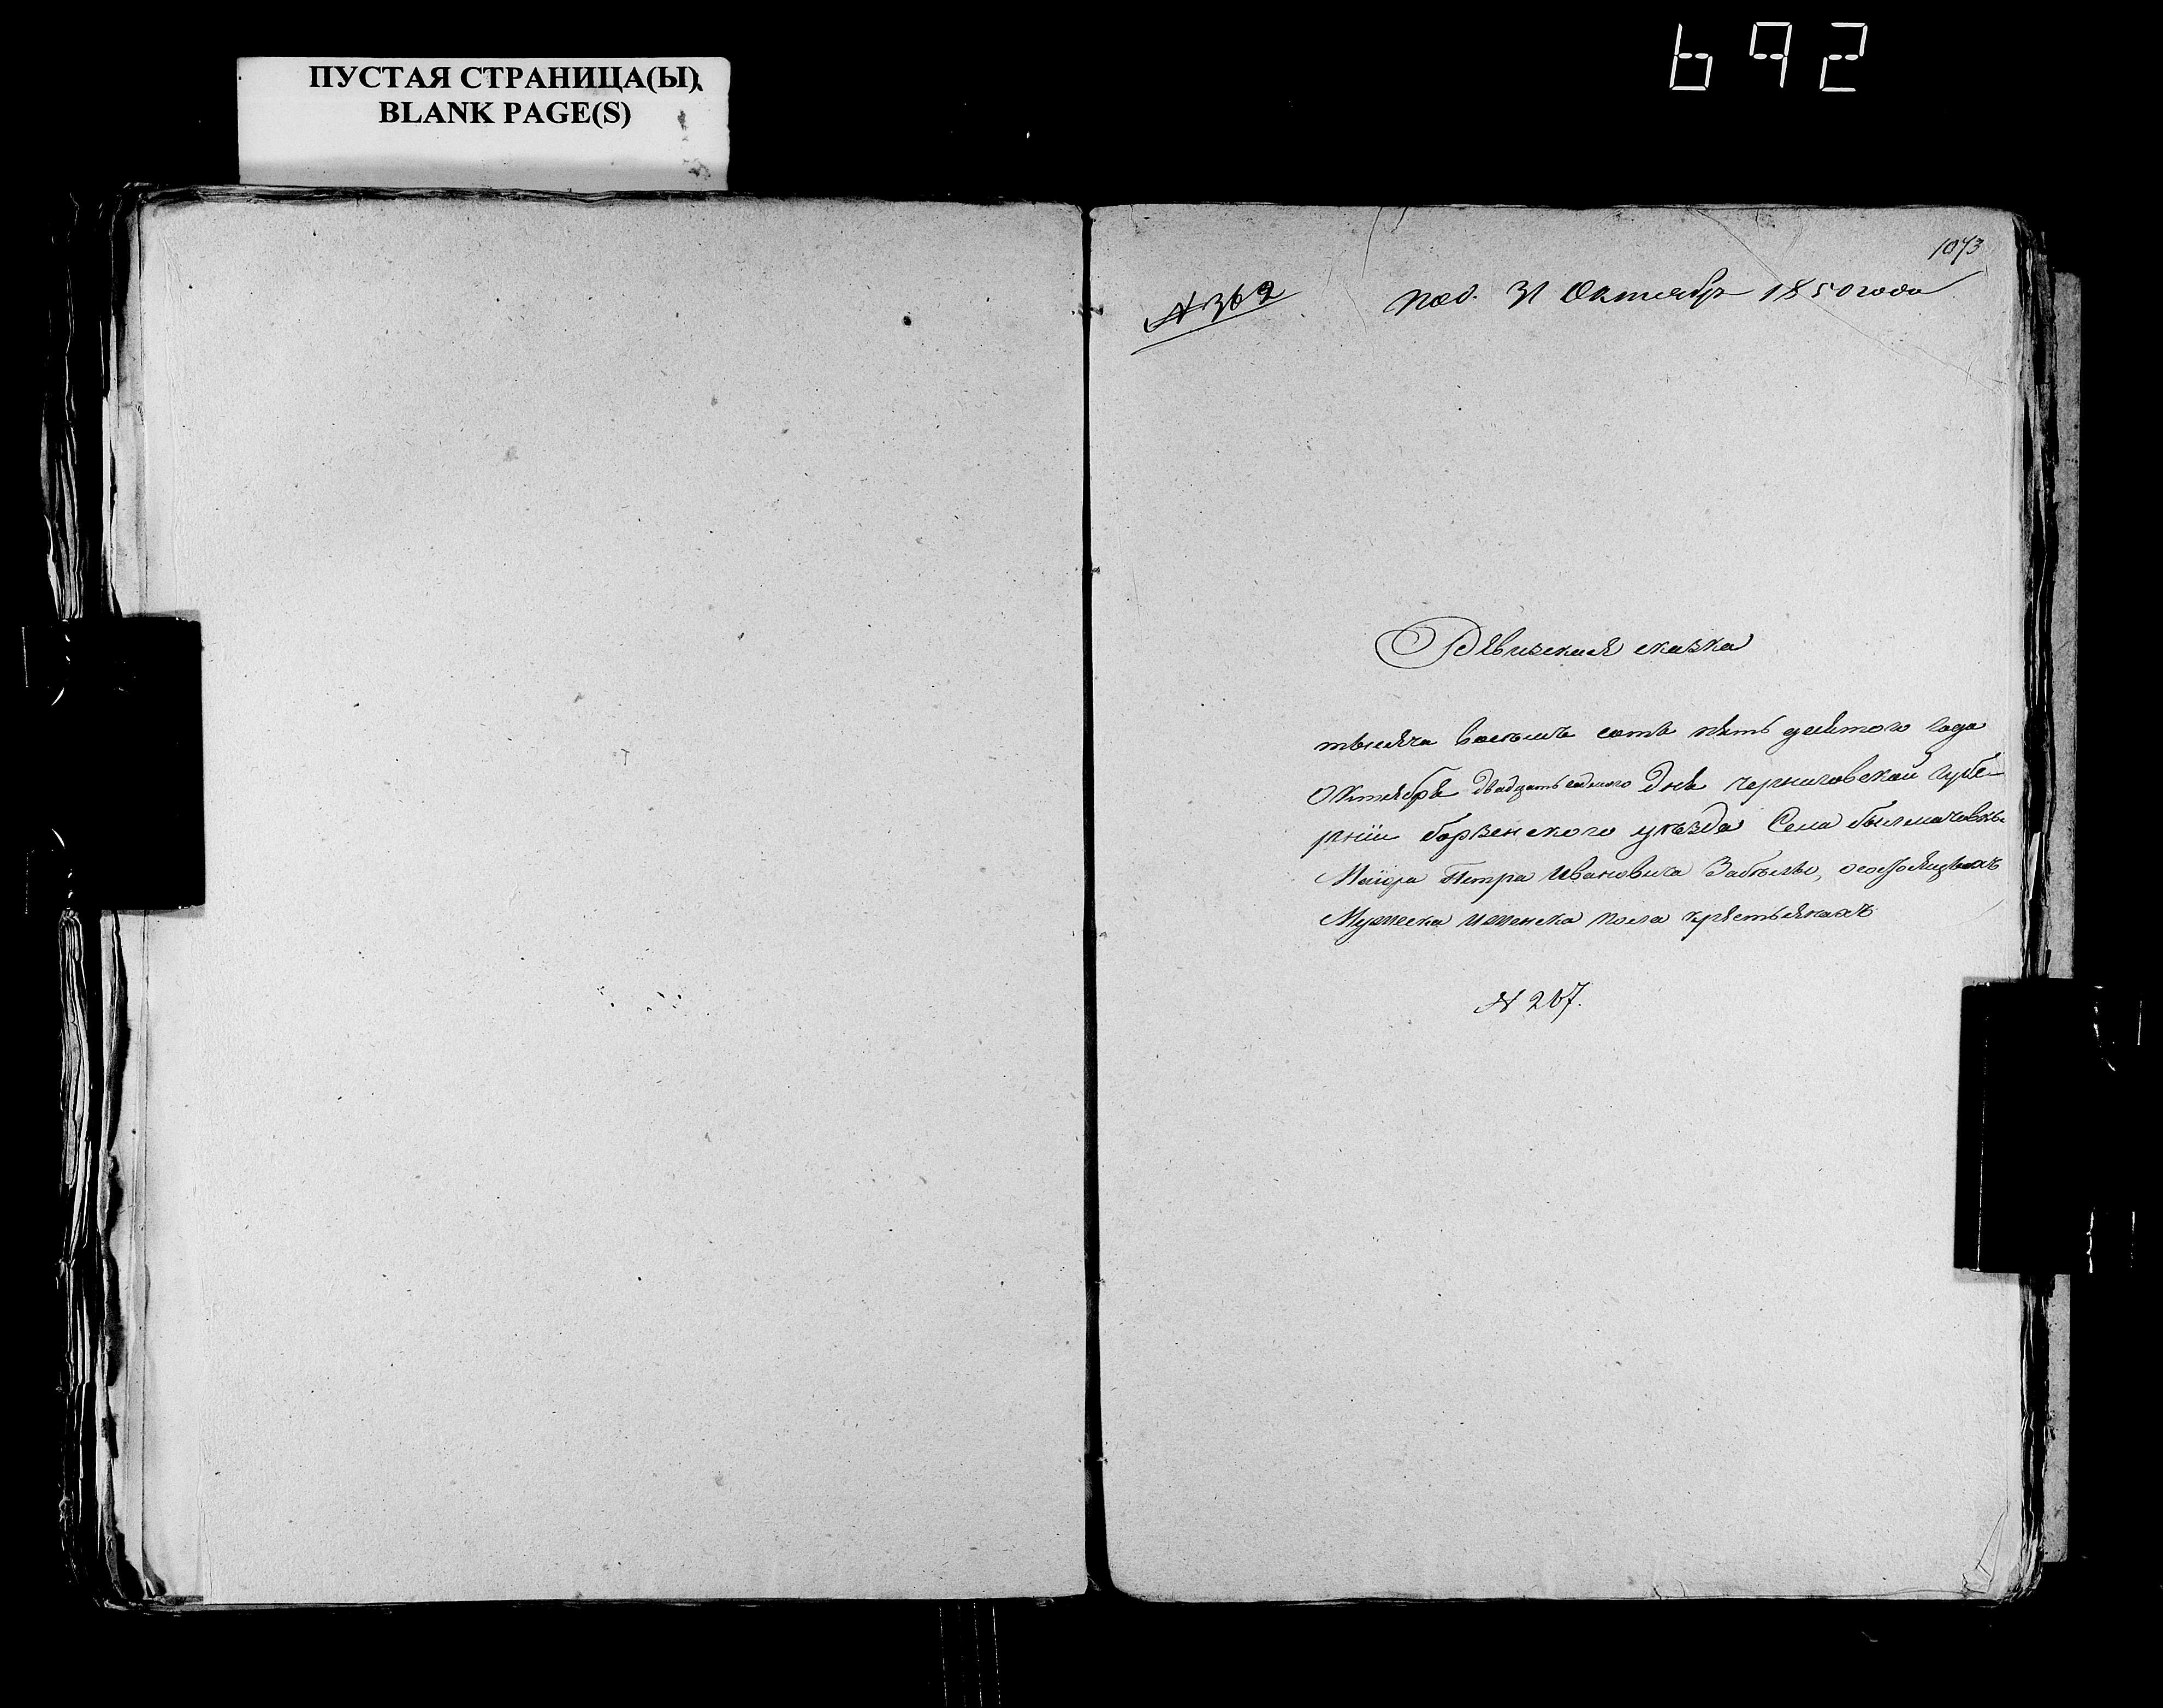 ПУСТАЯ СТРАНИЦА(Ы)
BLANK PAGE(S)
692
1073
№ 362
Под. 31 Октября 1850 года
Ревизская сказка
тысяча восемь сотъ пять десятого года
Октября двадцать седмого дня черниговской губе-
рніи борзенского уѣзда Села быхмачовки
Маіора Петра Ивановича Забѣлы, о состоящихъ
Мужеска иженска пола крестьянахъ
№ 207.